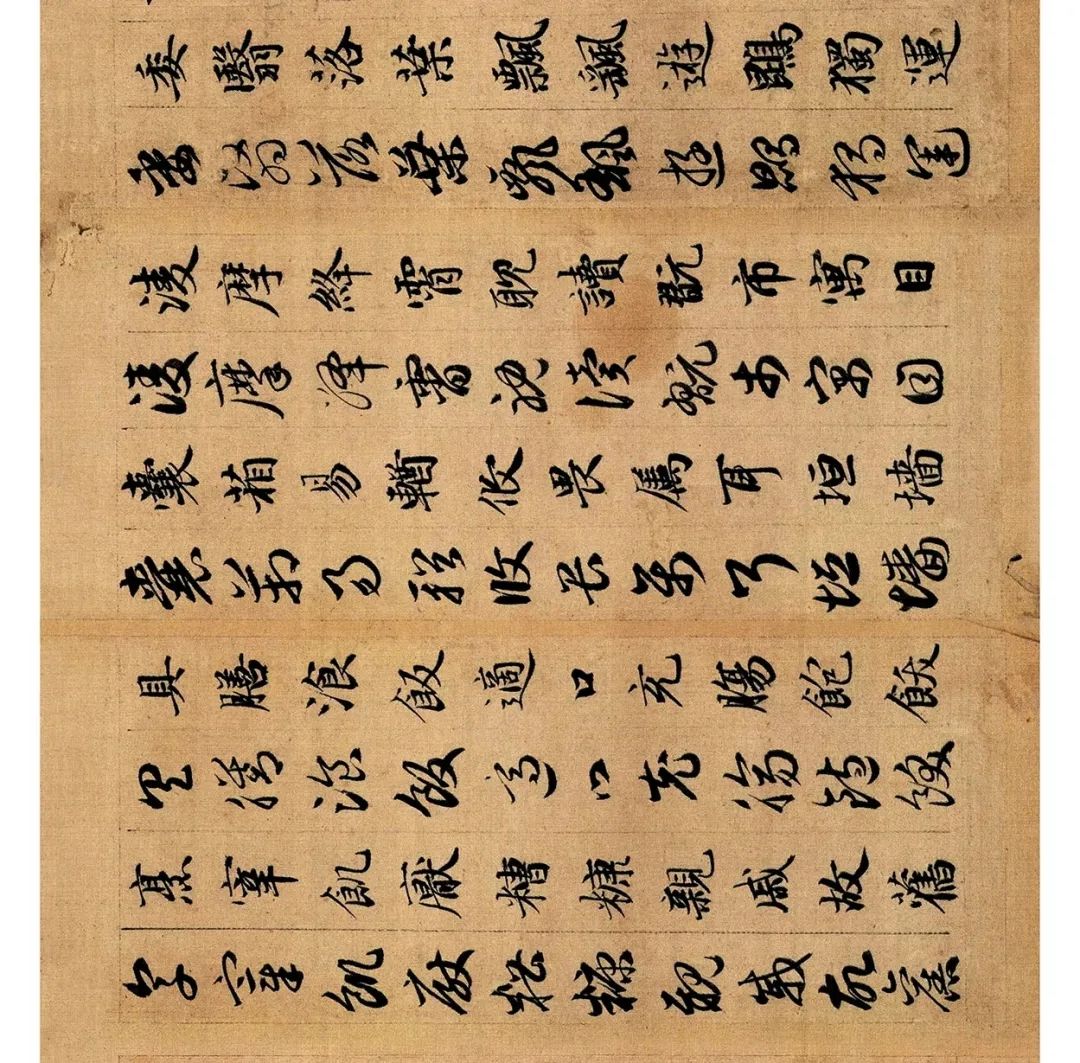 委翳落葉飄颻遊鵾獨運
委翳落葉飄颻遊鵾獨運
淩摩絳霄耽讀翫市寓目
淩摩絳霄耽讀翫市寓目
囊箱易輶攸畏屬耳垣墙
囊箱易輶攸畏屬耳垣墙
具膳湌飯適口充腸飽飫
具膳湌飯適口充腸飽飫
烹宰飢厭糟糠親戚故舊
烹宰飢厭糟糠親戚故舊